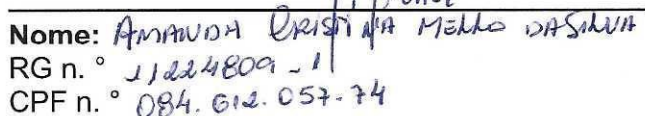 Nome: AMANDA CRISTINA MELLO DA SILVA
RG n. ° 11224809-1
CPF n. ° 084.612.057-74